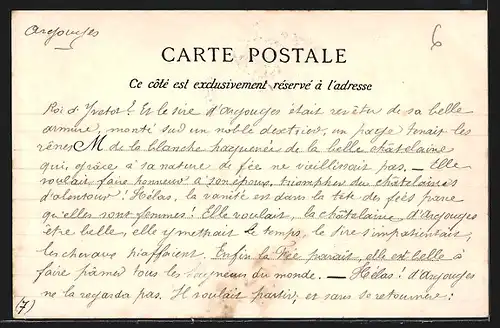 Argouges
6
CARTE POSTALE
Ce côté est exclusivement réservé à l'adresse
Roi d'Yvetot! Et le sire d'Argouges était revêtu de sa belle
armure, monté sur un noble destrier, un page tenait les
rênes M de la blanche haquenée de la belle châtelaine
qui, grâce à sa nature de fée ne vieillissait pas. — Elle
voulait faire honneur à son époux, triompher des châtelaines
d'alentour! Hélas, la vanité est dans la tête des fées parce
qu'elles sont femmes! Elle voulait, la châtelaine d'Argouges
être belle, elle y mettait le temps, le sire s'impatientait,
les chevaux piaffaient. Enfin la Fée paraît, elle est belle à
faire pâmer tous les seigneurs du monde. — Hélas! d'Argouges
ne la regarda pas. Il voulait partir, et sans se retourner:
(7)